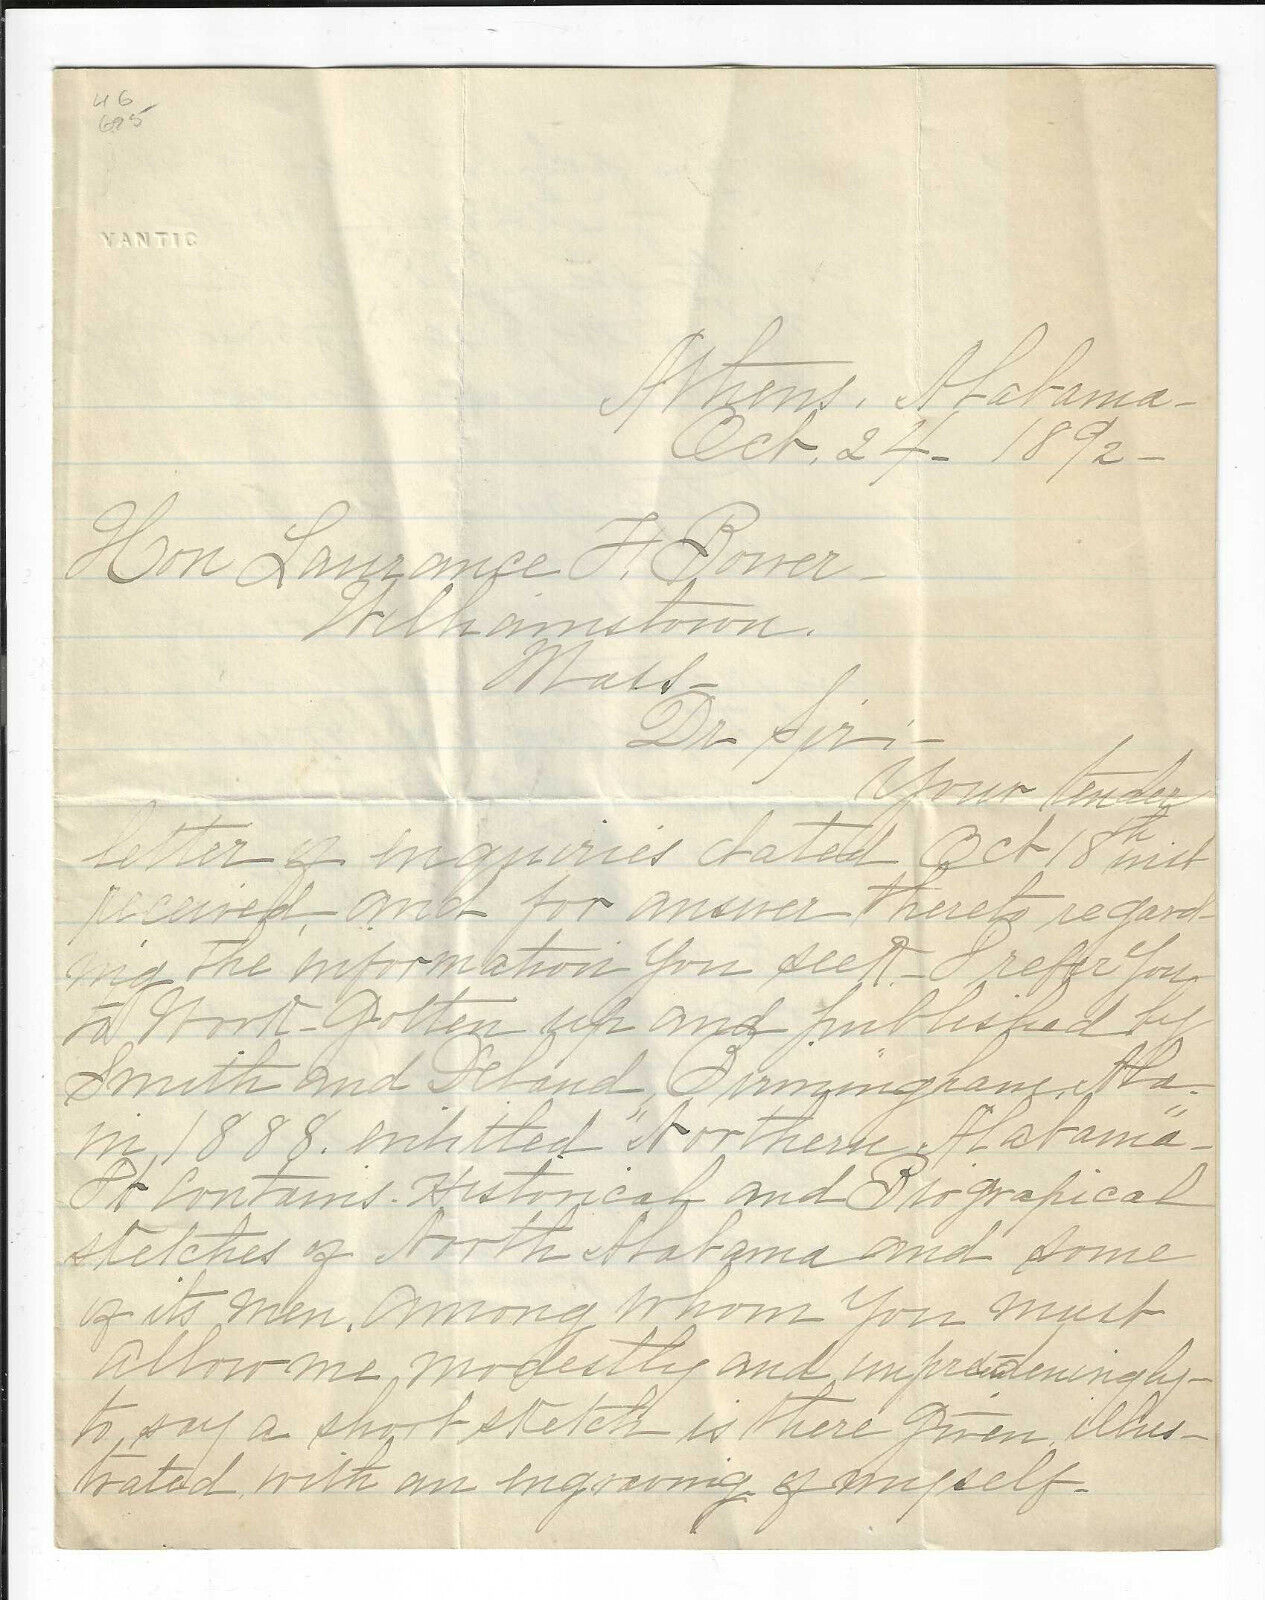 46
695
YANTIC
Athens, Alabama-
Oct. 24- 1892-
Hon Laurance F. Bower-
Williamstown.
Mass-
Dr Sir:-
Your tender
letter of enquiries dated Oct 18th inst
received, and for answer thereto regard-
ing the information you seek- I refer You
to Work- Gotten up and published by
Smith and Deland, Birmingham, Ala-
in 1888. entitled "Northern Alabama"-
It contains- Historical and Biograpical
sketches of North Alabama and some
of its men, among whom You must
allow me modestly and
to say a short sketch is there given, illus-
trated, with an engraving of myself-